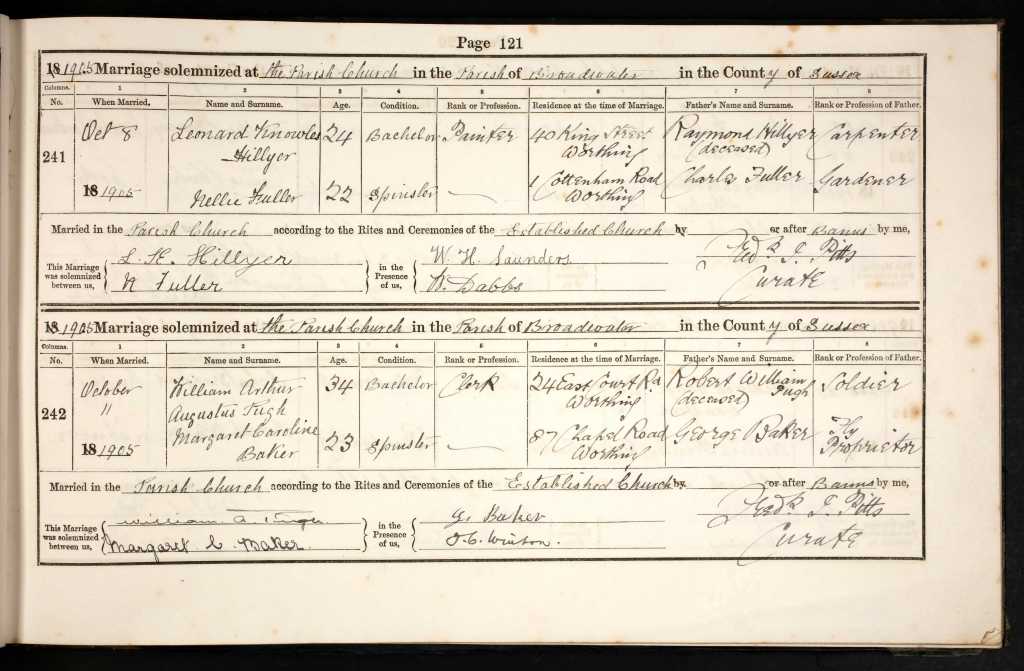 Page 121
18 1905 Marriage solemnized at the Parish Church in the Parish of Broadwater in the County of Sussex
Columns. 1 2 3 4 5 6 7 8
No. When Married. Name and Surname. Age. Condition. Rank or Profession. Residence at the time of Marriage. Father's Name and Surname. Rank or Profession of Father.
Oct 8 Leonard Knowles 24 Bachelor Painter 40 King Street Raymond Hillyer Carpenter
241 Hillyer Worthing (deceased)
18 1905 Nellie Fuller 22 Spinster — 1 Cottenham Road Charles Fuller Gardener
Worthing
Married in the Parish Church according to the Rites and Ceremonies of the Established Church by or after Banns by me,
L. K. Hillyer W. H. Saunders Fredk. J. Pitts
This Marriage was solemnized between us, in the Presence of us,
N Fuller W. Dabbs Curate
18 1905 Marriage solemnized at the Parish Church in the Parish of Broadwater in the County of Sussex
Columns. 1 2 3 4 5 6 7 8
No. When Married. Name and Surname. Age. Condition. Rank or Profession. Residence at the time of Marriage. Father's Name and Surname. Rank or Profession of Father.
October William Arthur 34 Bachelor Clerk 24 East Court Rd Robert William Soldier
11 Augustus Pugh Worthing (deceased) Pugh
242 Margaret Caroline 23 Spinster — 87 Chapel Road George Baker Fly
18 1905 Baker Worthing Proprietor
Married in the Parish Church according to the Rites and Ceremonies of the Established Church by or after Banns by me,
William A. Pugh G. Baker Fredk. J. Pitts
This Marriage was solemnized between us, in the Presence of us,
Margaret C. Baker. Curate